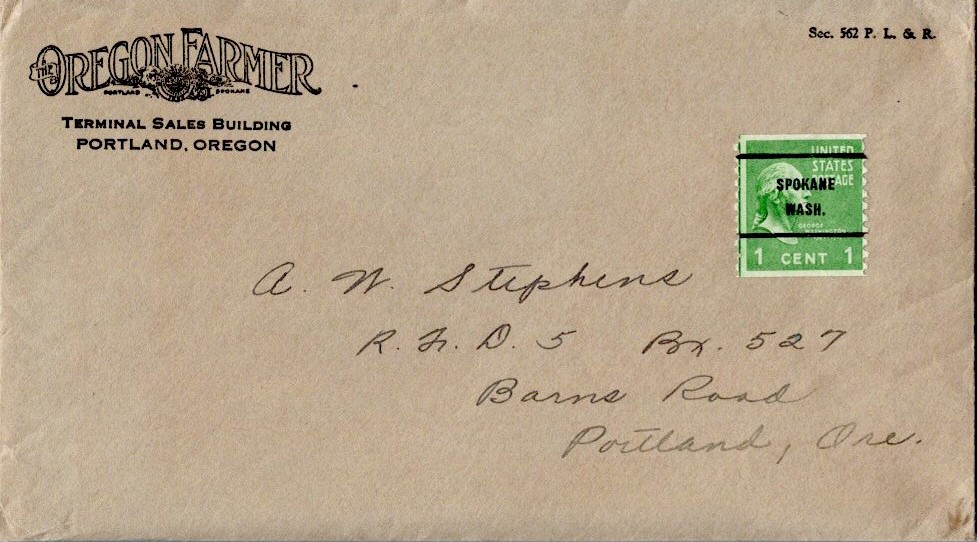 THE OREGON FARMER
PORTLAND SPOKANE
TERMINAL SALES BUILDING
PORTLAND, OREGON
Sec. 562 P. L. & R.
UNITED
STATES
POSTAGE
SPOKANE
WASH.
GEORGE
WASHINGTON
1 CENT 1
A. W. Stephens
R. F. D. 5 Bx. 527
Barns Road
Portland, Ore.